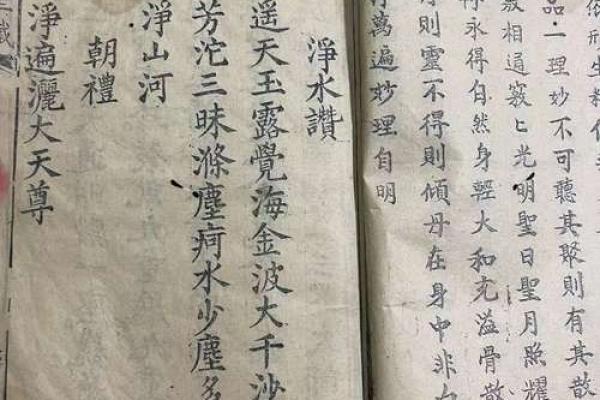 依形生
品一理妙不可聽其聚則有其散
竅相通竅匕光明聖日聖月照耀
存永得自然身輕大和充溢骨散
得則靈不得則傾丹在身中非
萬遍妙理自明
淨水讚
遥天玉露覺海金波大千沙
芳沱三昧滌塵疴水少塵多
淨山河
朝禮
淨遍灑大天尊